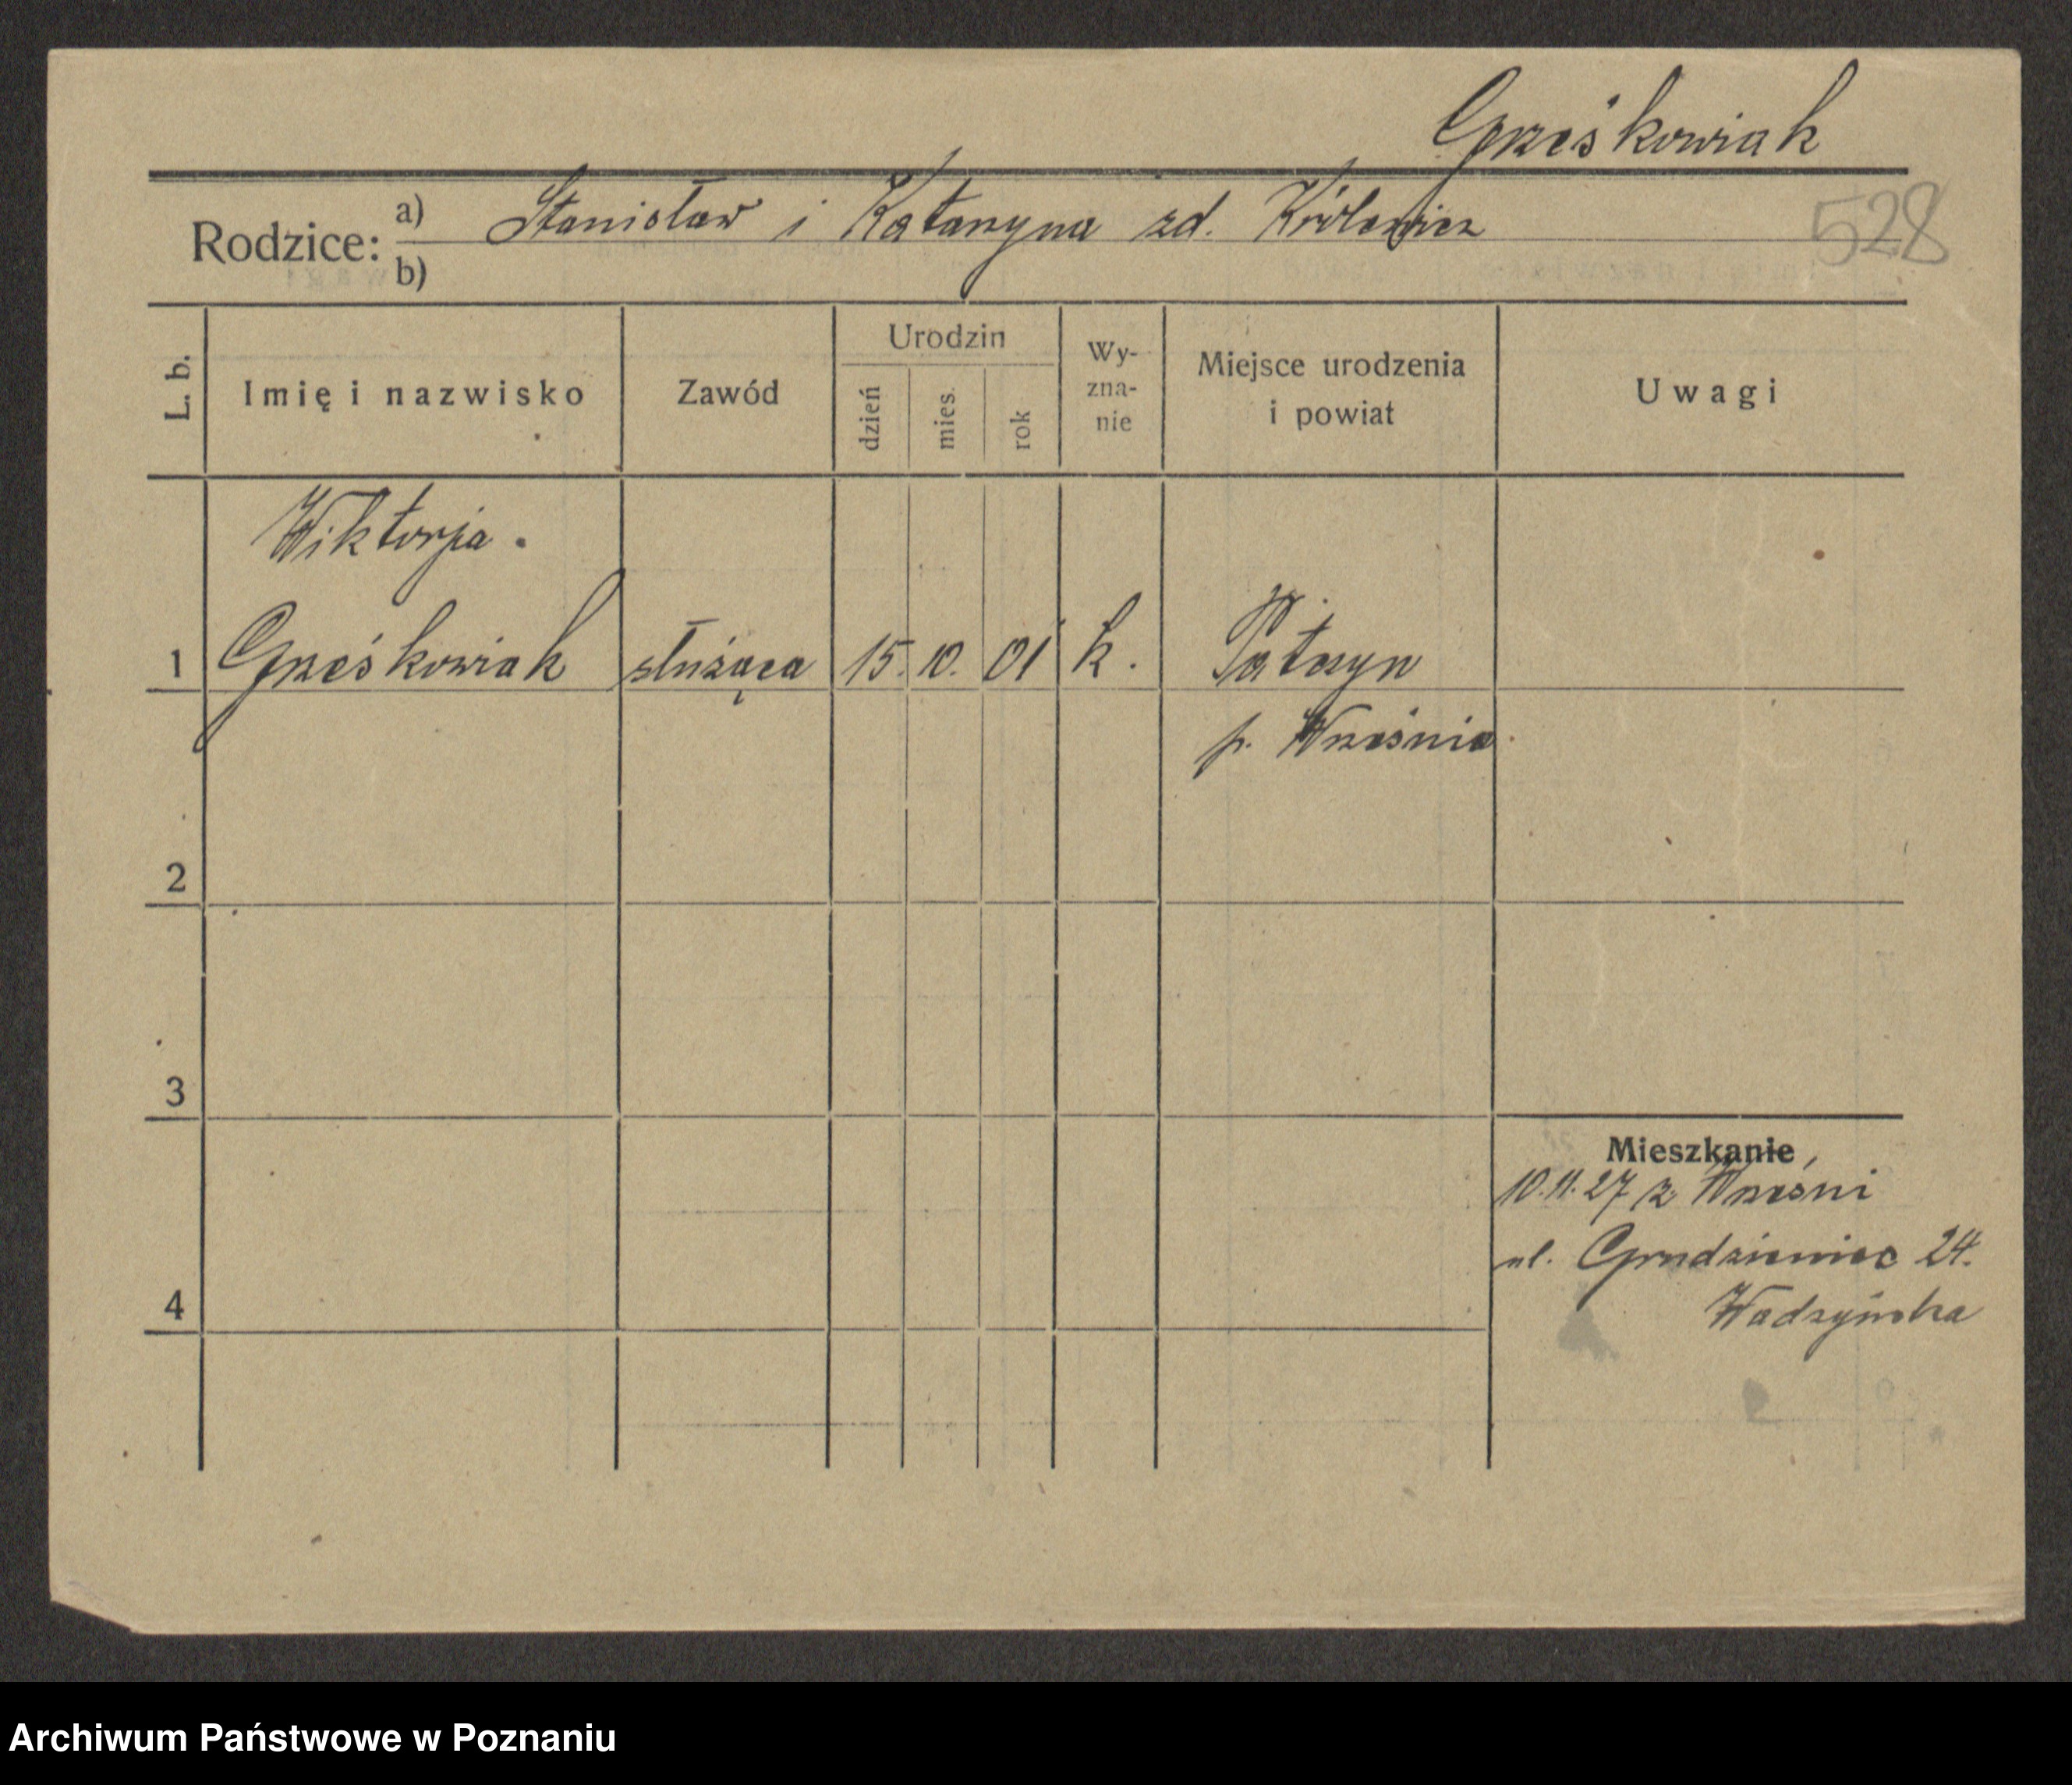 Grześkowiak
528
Rodzice: a) Stanisław i Katarzyna zd. Królewicz
b)
L. b. Imię i nazwisko Zawód Urodzin dzień mies. rok Wy-zna-nie Miejsce urodzenia i powiat Uwagi
Wiktorja.
1 Grześkowiak służąca 15. 10. 01 k.
p. Września
2
3
Mieszkanie
10.11.27 z Wrześni
ul. Grudzieniec 24.
4
Archiwum Państwowe w Poznaniu